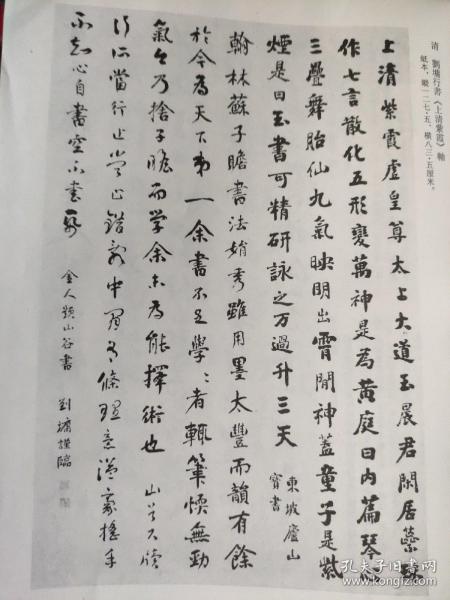 清　劉墉行書《上清紫霞》軸
紙本，縱一二七·五，橫八三·五厘米。
上清紫霞虛皇尊太上大道玉晨君閑居蘂珠
作七言散化五形變萬神是為黃庭曰內篇琴心
三疊舞胎仙九氣映明出霄間神蓋童子紫
煙是曰玉書可精研詠之万過升三天
東坡廬山
寶書
翰林蘇子瞻書法娟秀雖用墨太豐而韻有餘
於今為天下第一余書不足學〻者輒筆愞無勁
氣今乃捨子瞻而學余未為能擇術也 山谷
行所當行止當止錯亂中間有條理意溢毫搖手
不知心自書空不書紙 金人題山谷書 劉墉謹臨
孔夫子旧书网